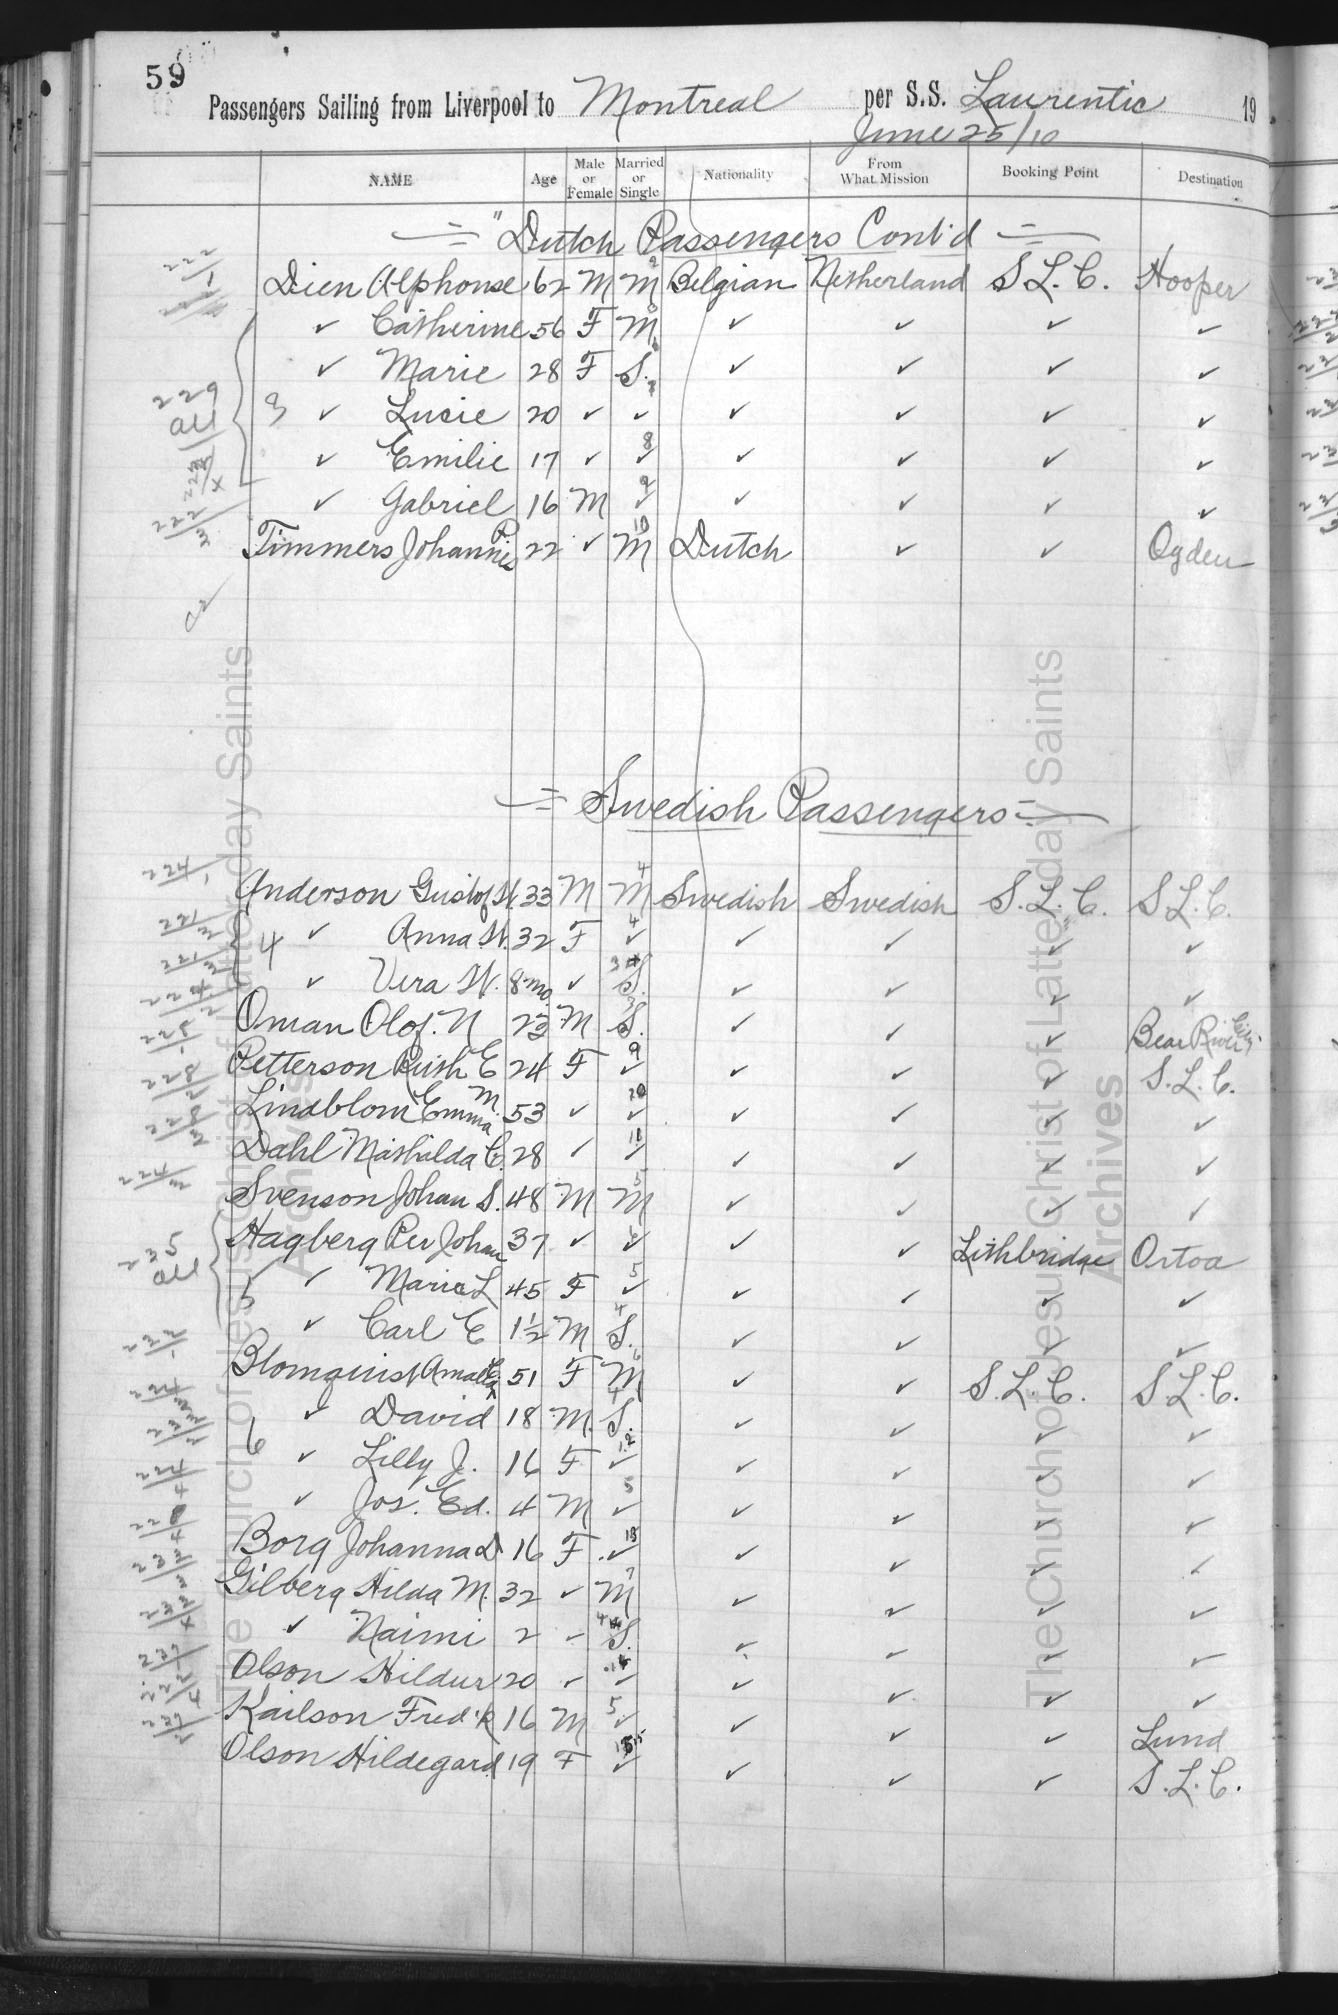 59
Passengers Sailing from Liverpool to Montreal per S.S. Laurentic 19
June 25/10
NAME Age Male or Female Married or Single Nationality From What Mission Booking Point Destination
" Dutch Passengers Cont'd
Dien Alphonse 62 M M Belgian Netherland S.L.C. Hooper
✓ Catherine 56 F M ✓ ✓ ✓ ✓
✓ Marie 28 F S. ✓ ✓ ✓ ✓
229 All 3 ✓ Lucie 20 ✓ ✓ ✓ ✓ ✓ ✓
✓ Emilie 17 ✓ ✓ 8 ✓ ✓ ✓ ✓
✓ Gabriel 16 M ✓ 9 ✓ ✓ ✓ ✓
Timmers Johannes P 22 ✓ M 10 Dutch ✓ ✓ Ogden
Swedish Passengers
224/1 Anderson Gustof W. 33 M M 4 Swedish Swedish S.L.C. S.L.C.
4 ✓ Anna W. 32 F ✓ 4 ✓ ✓ ✓ ✓
✓ Vera W. 8 mo. ✓ S. ✓ ✓ ✓ ✓
Oman Olof. N 23 M S. 3 ✓ ✓ ✓ Bear River City.
Petterson Ruth E 24 F ✓ 9 ✓ ✓ ✓ S.L.C.
Lindblom Emma M. 53 ✓ ✓ 20 ✓ ✓ ✓ ✓
Dahl Mathilda C. 28 ✓ ✓ ✓ ✓ ✓ ✓
Svenson Johan S. 48 M M 5 ✓ ✓ ✓ ✓
235 All Hagberg Per Johan 37 ✓ ✓ ✓ ✓ Lithbridge Ortoa
5 ✓ Maria L 45 F ✓ 5 ✓ ✓ ✓ ✓
✓ Carl E 1½ M S. 4 ✓ ✓ ✓ ✓
Blomquist Amalia 51 F M 6 ✓ ✓ S.L.C. S.L.C.
✓ David 18 M. S. 4 ✓ ✓ ✓ ✓
6 ✓ Lilly J. 16 F ✓ 12 ✓ ✓ ✓ ✓
✓ Jos. Ed. 4 M ✓ 5 ✓ ✓ ✓ ✓
Borg Johanna D 16 F ✓ ✓ ✓ ✓ ✓
Gilberg Hilda M. 32 ✓ M 7 ✓ ✓ ✓ ✓
✓ Naimi 2 ✓ S. ✓ ✓ ✓ ✓
Olson Hildur 20 ✓ ✓ ✓ ✓ ✓ ✓
Kailson Fred'k 16 M ✓ 5 ✓ ✓ ✓ Lund
Olson Hildegard 19 F ✓ ✓ ✓ ✓ S.L.C.
The Church of Jesus Christ of Latter-day Saints
Archives
The Church of Jesus Christ of Latter-day Saints
Archives